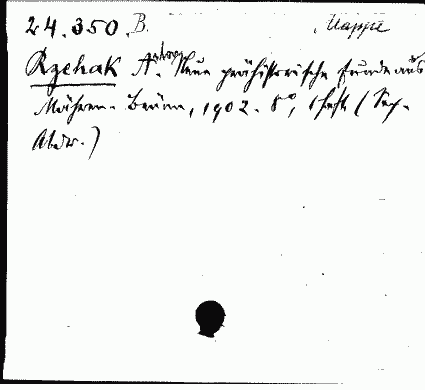 24.350.B. Mappe
Rzehak Anton. Neue prähistorische Funde aus
Mähren. Brünn, 1902. 8°, 1 Heft (Sep.
Abdr.)